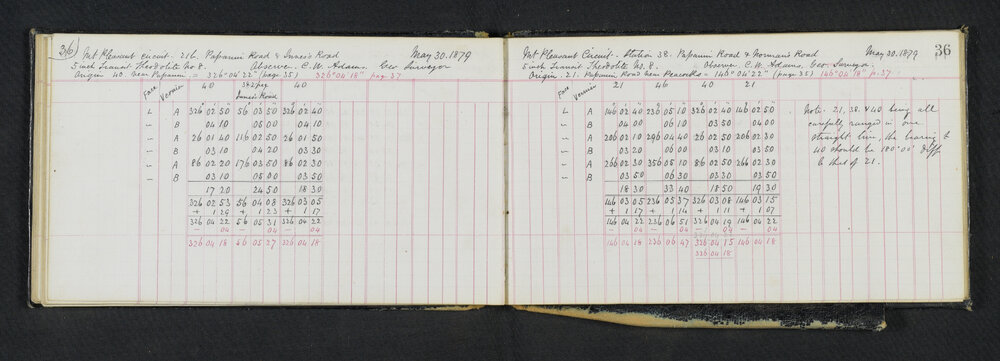 36) Mt Pleasant circuit. 21b. Papanui Road & Innes's Road May 30. 1879
5 inch Transit Theodolite No 8. Observer C. W. Adams. Geo Surveyor
Origin 40. near Papanui = 326° 04' 22" (page 35) 326° 04' 18" pag 37
Face Vernier 40 40
Innes's Road
L A 326 02 50 56 03 50 326 02 40
— B 04 10 05 00 04 10
— A 26 01 40 116 02 50 26 01 50
— B 03 10 04 20 03 30
— A 86 02 20 176 03 50 86 02 30
— B 03 10 05 00 03 50
17 20 24 50 18 30
326 02 53 56 04 08 326 03 05
+ 1 29 + 1 23 + 1 17
326 04 22 56 05 31 326 04 22
— 04 — 04 — 04
326 04 18 56 05 27 326 04 18
36
Mt Pleasant Circuit. Station 38. Papanui Road & Norman's Road May 30. 1879
5 inch Transit Theodolite No. 8. Observer C. W. Adams, Geo. Surveyor.
Origin. 21. Papanui Road near Peacocks = 146° 04' 22" (page 35) 146° 04' 18" p. 37
Face Vernier 21 46 40 21
L A 146 02 40 236 05 10 326 02 40 146 02 50
— B 04 00 06 10 04 00 04 00
— A 206 02 10 296 04 40 26 02 50 206 02 30
— B 03 50 06 10 03 50 03 50
— A 266 02 30 356 05 10 86 02 50 266 02 30
— B 03 50 06 30 03 30 03 50
18 30 33 40 18 50 19 30
146 03 05 236 05 37 326 03 08 146 03 15
+ 1 17 + 1 14 + 1 11 + 1 07
146 04 22 236 06 51 326 04 19 146 04 22
— 04 — 04 — 04 — 04
146 04 18 236 06 47 326 04 15 146 04 18
326 04 18
Note: 21, 38. & 40 being all
carefully ranged in one
straight line, the bearing to
40 should be 180° 00' diff
to that of 21.